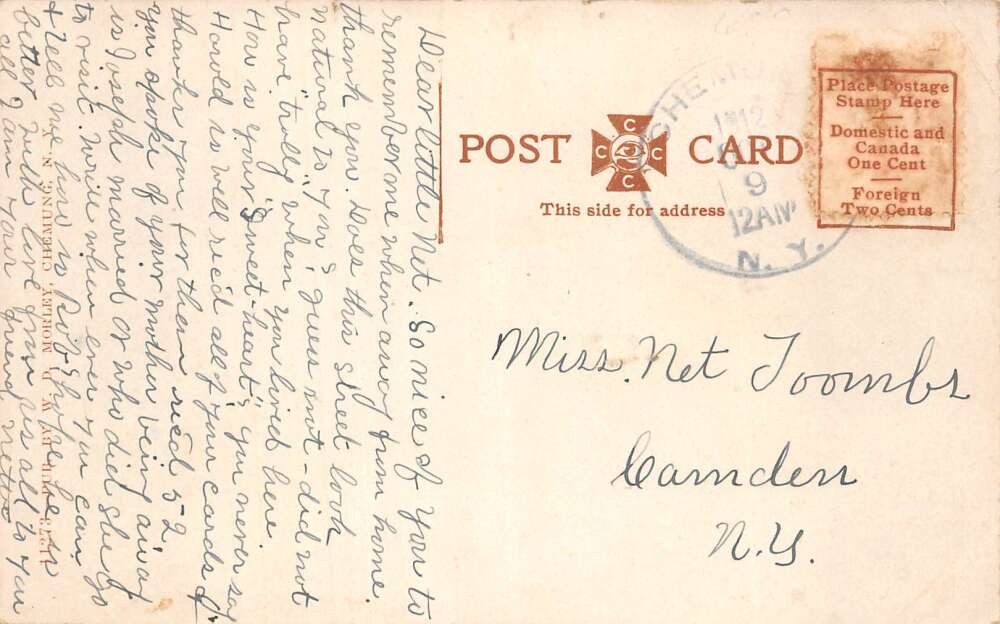 Dear little Net. So nice of you to
remember me when away from home.
thank you. Does this street look
natural to you? guess not - did not
have "trolly" when you lived here.
How is your "sweet-heart"? you never say
Harold is well rec'd all of your cards &
thanks you for them rec'd 52
you spoke of your mother being away
is Joseph married or who did she go
to visit. Write when ever you can
& tell me how is Rob. I hope he is
better with love from us all to you
all I am your friend Nette
MORLEY, CHEMUNG, N.
POST CARD
C C C C
This side for address
N. Y.
9
12 AM
Place Postage
Stamp Here
Domestic and
Canada
One Cent
Foreign
Two Cents
Miss. Net Toombs
Camden
N.Y.